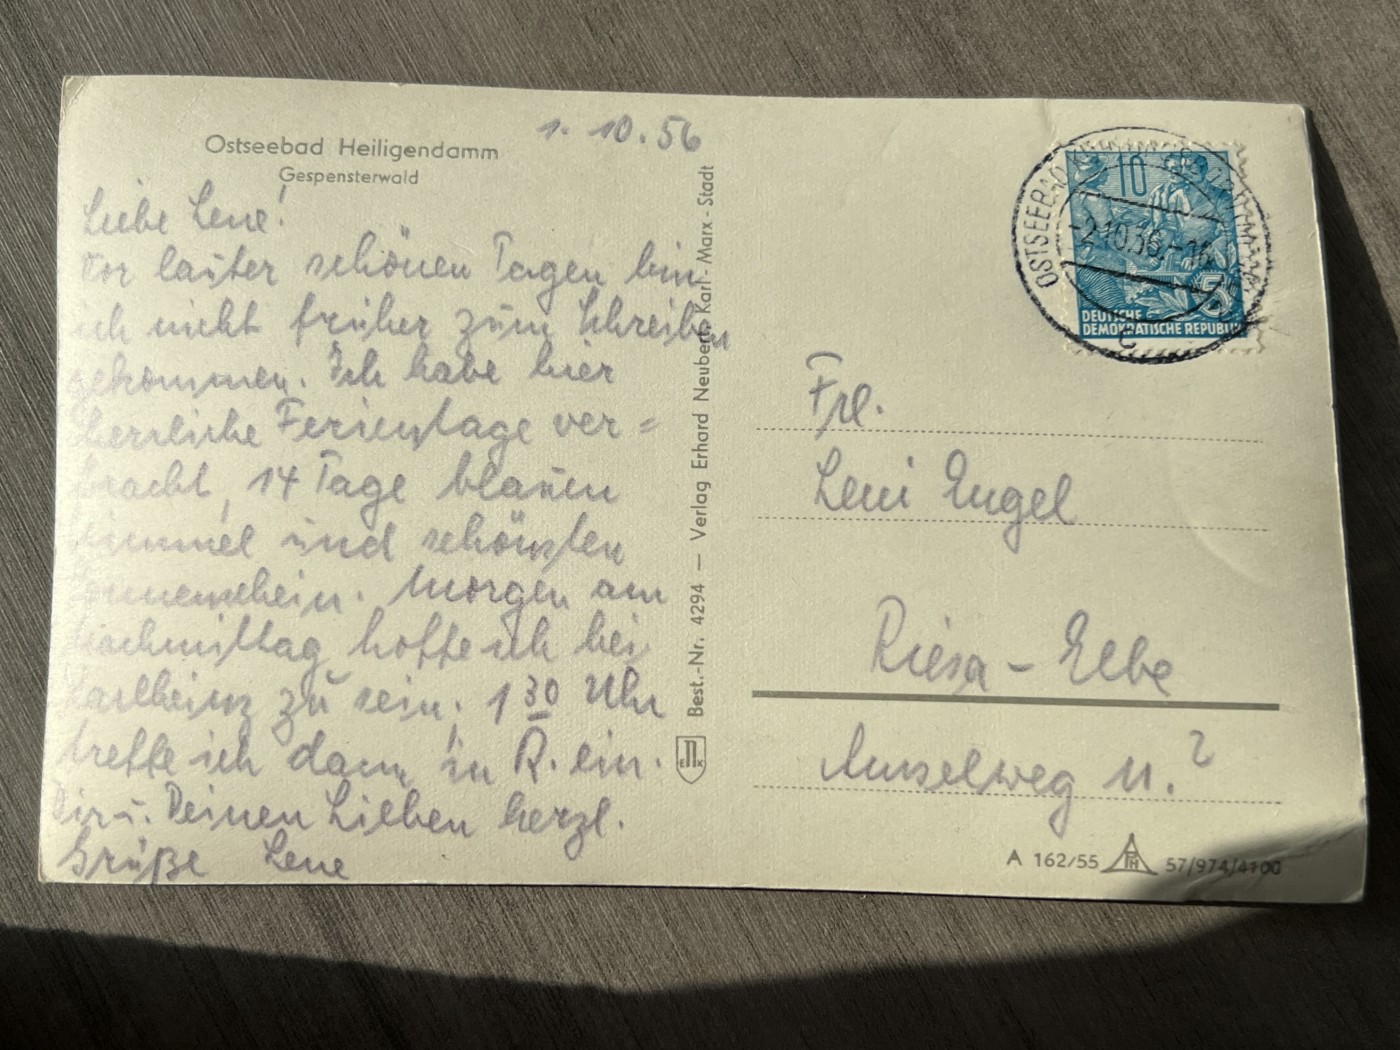 Ostseebad Heiligendamm
Gespensterwald
1. 10. 56
Liebe Lene!
Vor lauter schönen Tagen bin
ich nicht früher zum Schreiben
gekommen. Ich habe hier
herrliche Ferientage ver=
bracht, 14 Tage blauen
Himmel und schönsten
Sonnenschein. Morgen am
Nachmittag hoffe ich bei
Karlheinz zu sein. 1 30 Uhr
treffe ich dann in R. ein.
Dir u. Deinen Lieben herzl.
Grüße Lene
Best.-Nr. 4294 — Verlag Erhard Neubert, Karl-Marx-Stadt
10
DEUTSCHE
DEMOKRATISCHE REPUBLIK
5
OSTSEEBAD
-2.10.56.-16
c
Frl.
Leni Engel
Riesa - Elbe
Amselweg 11.?
A 162/55 57/974/4100